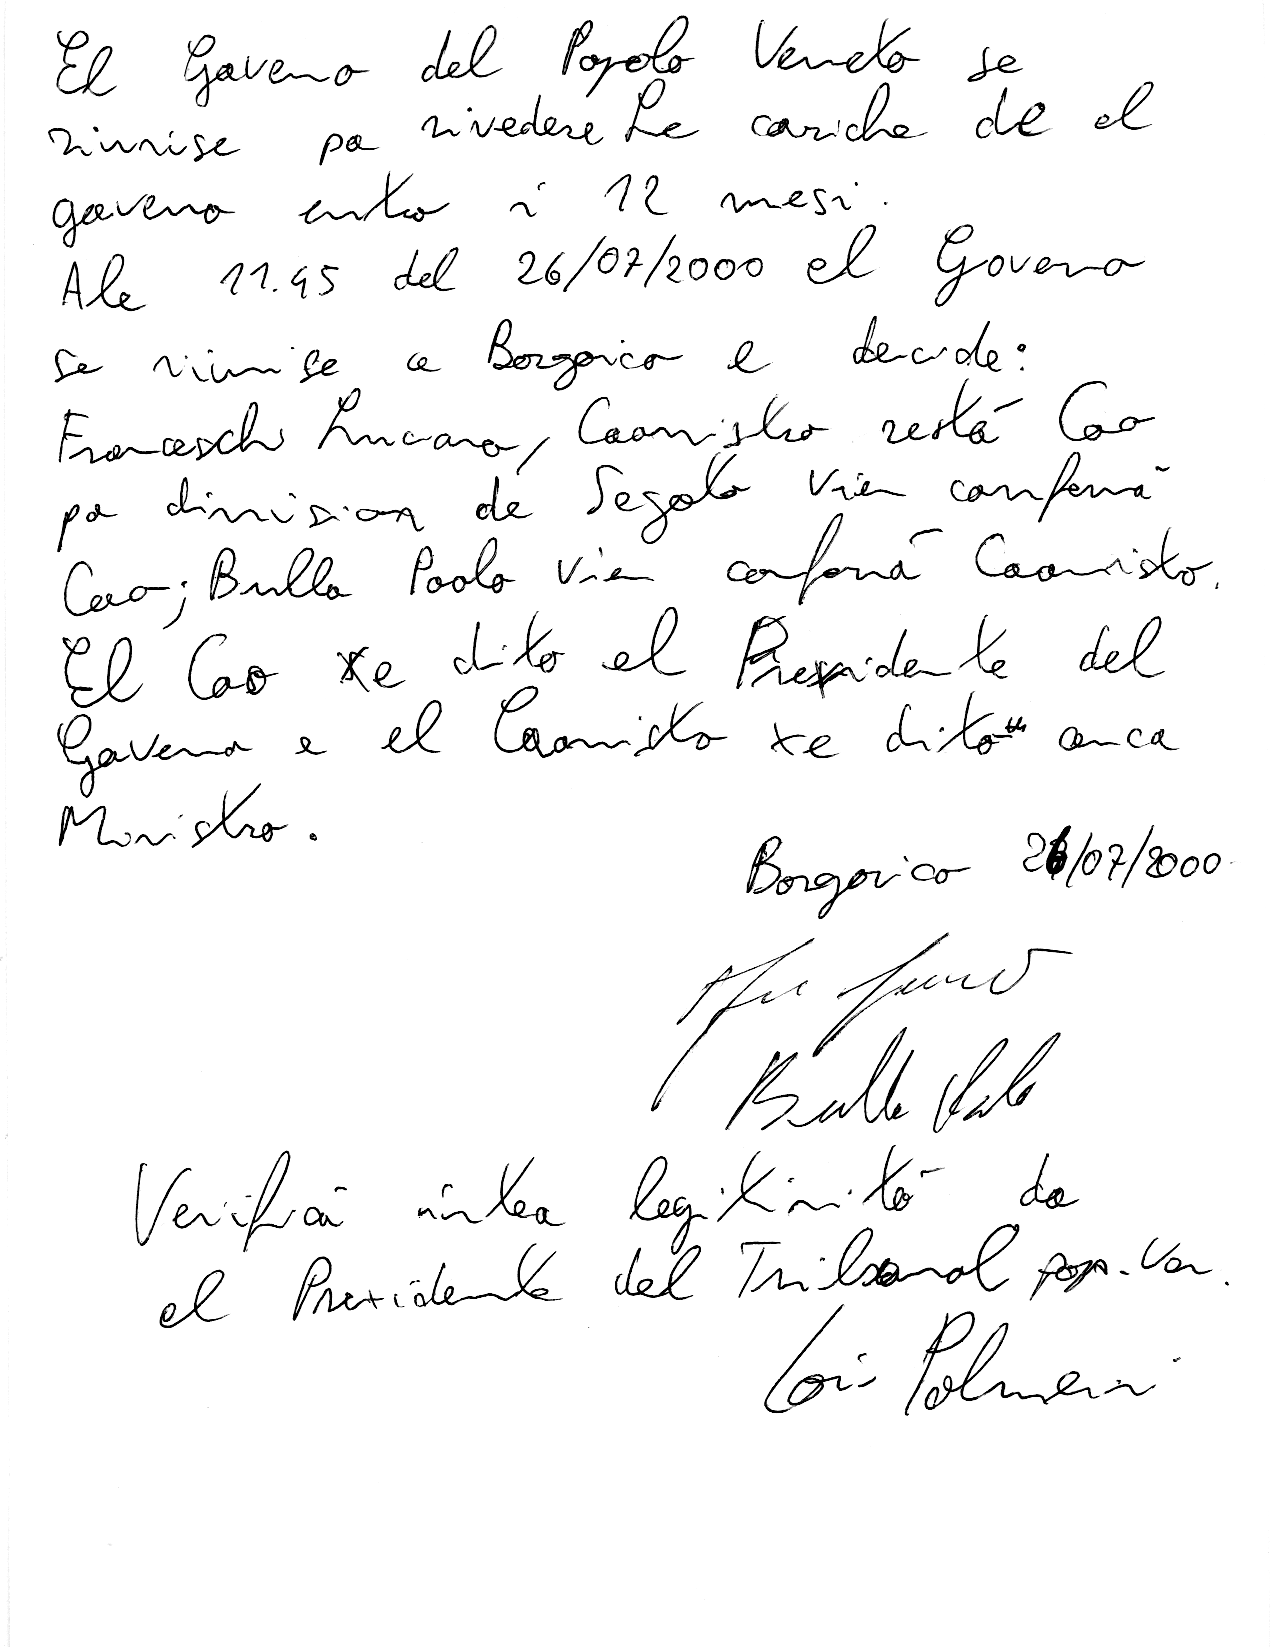 El Goveno del Popolo Veneto se
riunise pa rivedere le cariche de el
goveno entro i 12 mesi.
Ale 11.45 del 26/07/2000 el Goveno
se riunise a Borgorico e decide:
Franceschi Luciano, Caonistro restá Cao
pa dimision de Segato vien confemá
Cao; Bulla Paolo vien confemá Caonistro.
El Cao xe dito el Prexidente del
Goveno e el Caonistro xe dito anca
Ministro.
Borgorico 26/07/2000
Bulla Paolo
Verificá intea legitimitá da
el Prexidente del Tribunal pop. Ven.
Lois Palmeri